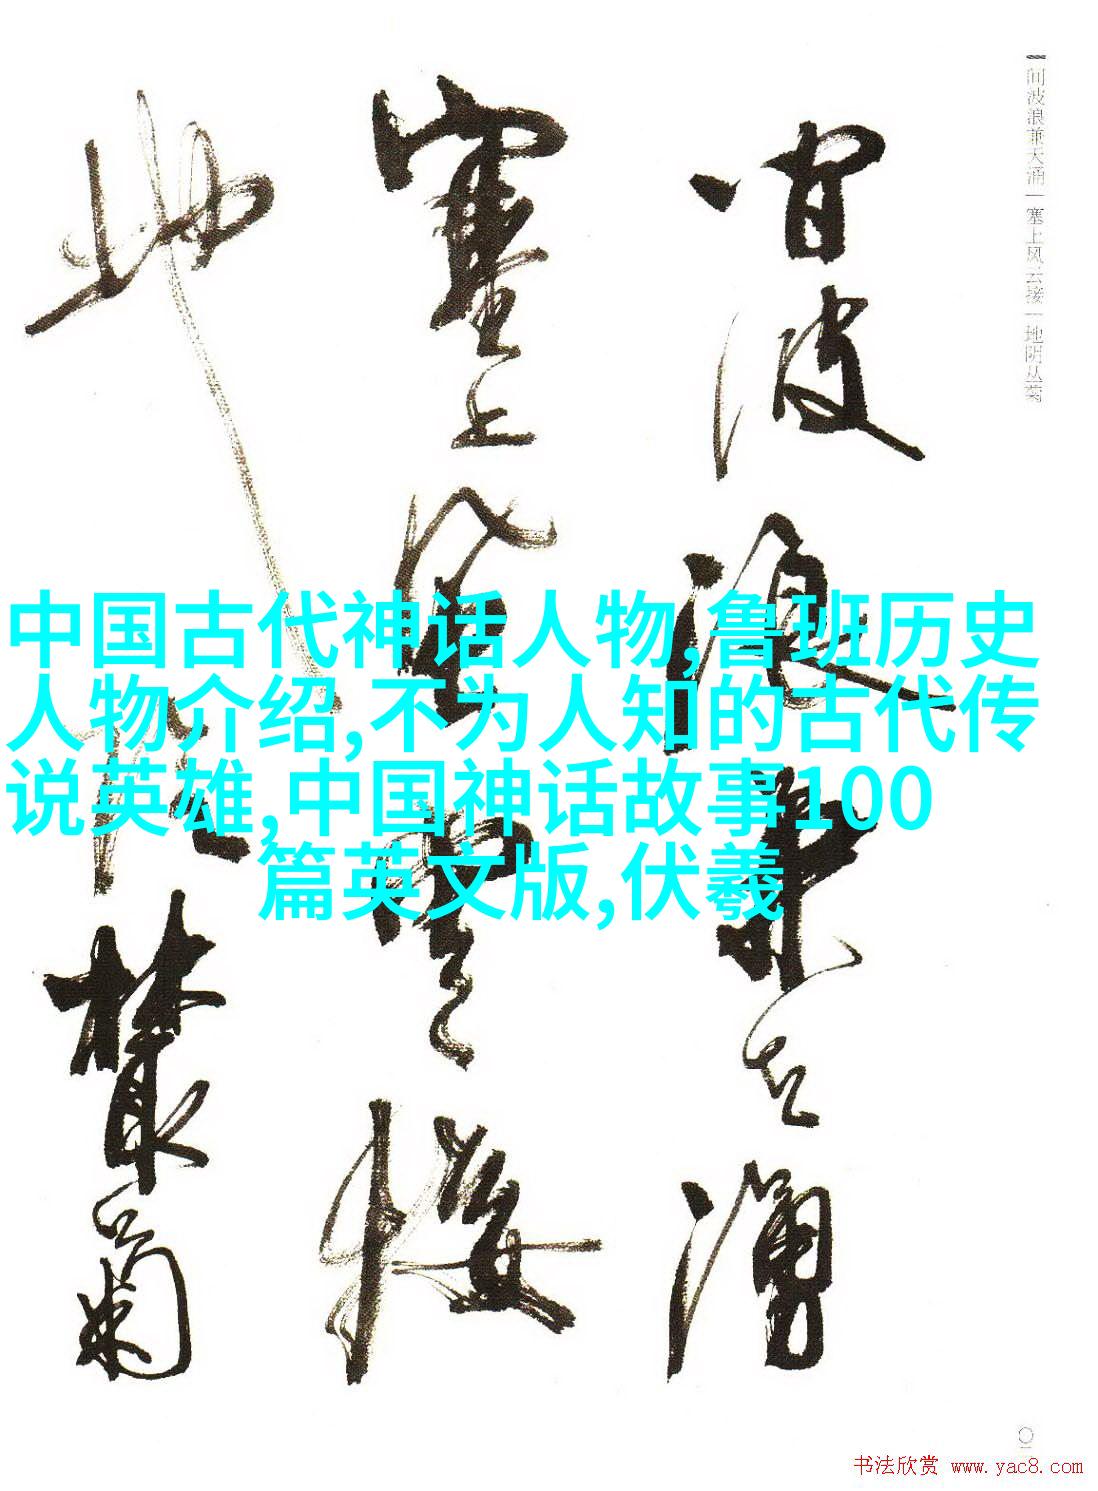 间波浪兼天涌 | 塞上风云接 | 地阴丛菊
间波浪兼天涌
塞上风云接
地阴丛菊
中国古代神话人物,鲁班历史
人物介绍,不为人知的古代传
说英雄,中国神话故事100
篇英文版,伏羲
书法欣赏 www.yac8.com